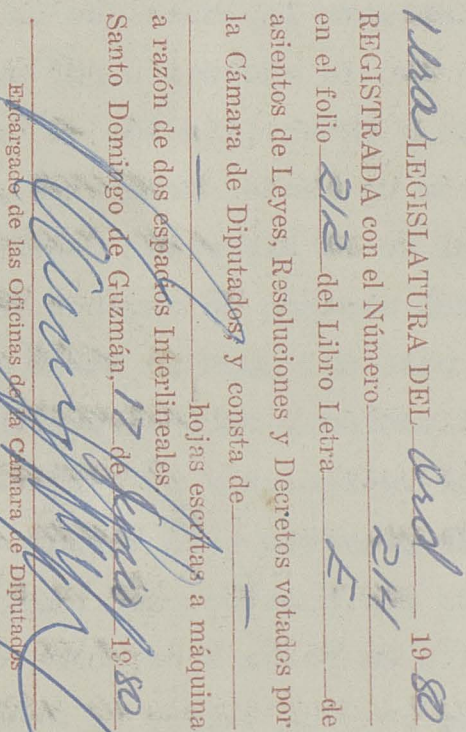 1ra LEGISLATURA DEL Ord 1980
REGISTRADA con el Número 214
en el folio 212 del Libro Letra E de
asientos de Leyes, Resoluciones y Decretos votados por
la Cámara de Diputados, y consta de —
— hojas escritas a máquina
a razón de dos espacios Interlineales
Santo Domingo de Guzmán, 17 de 1980
Encargado de las Oficinas de la Cámara de Diputados